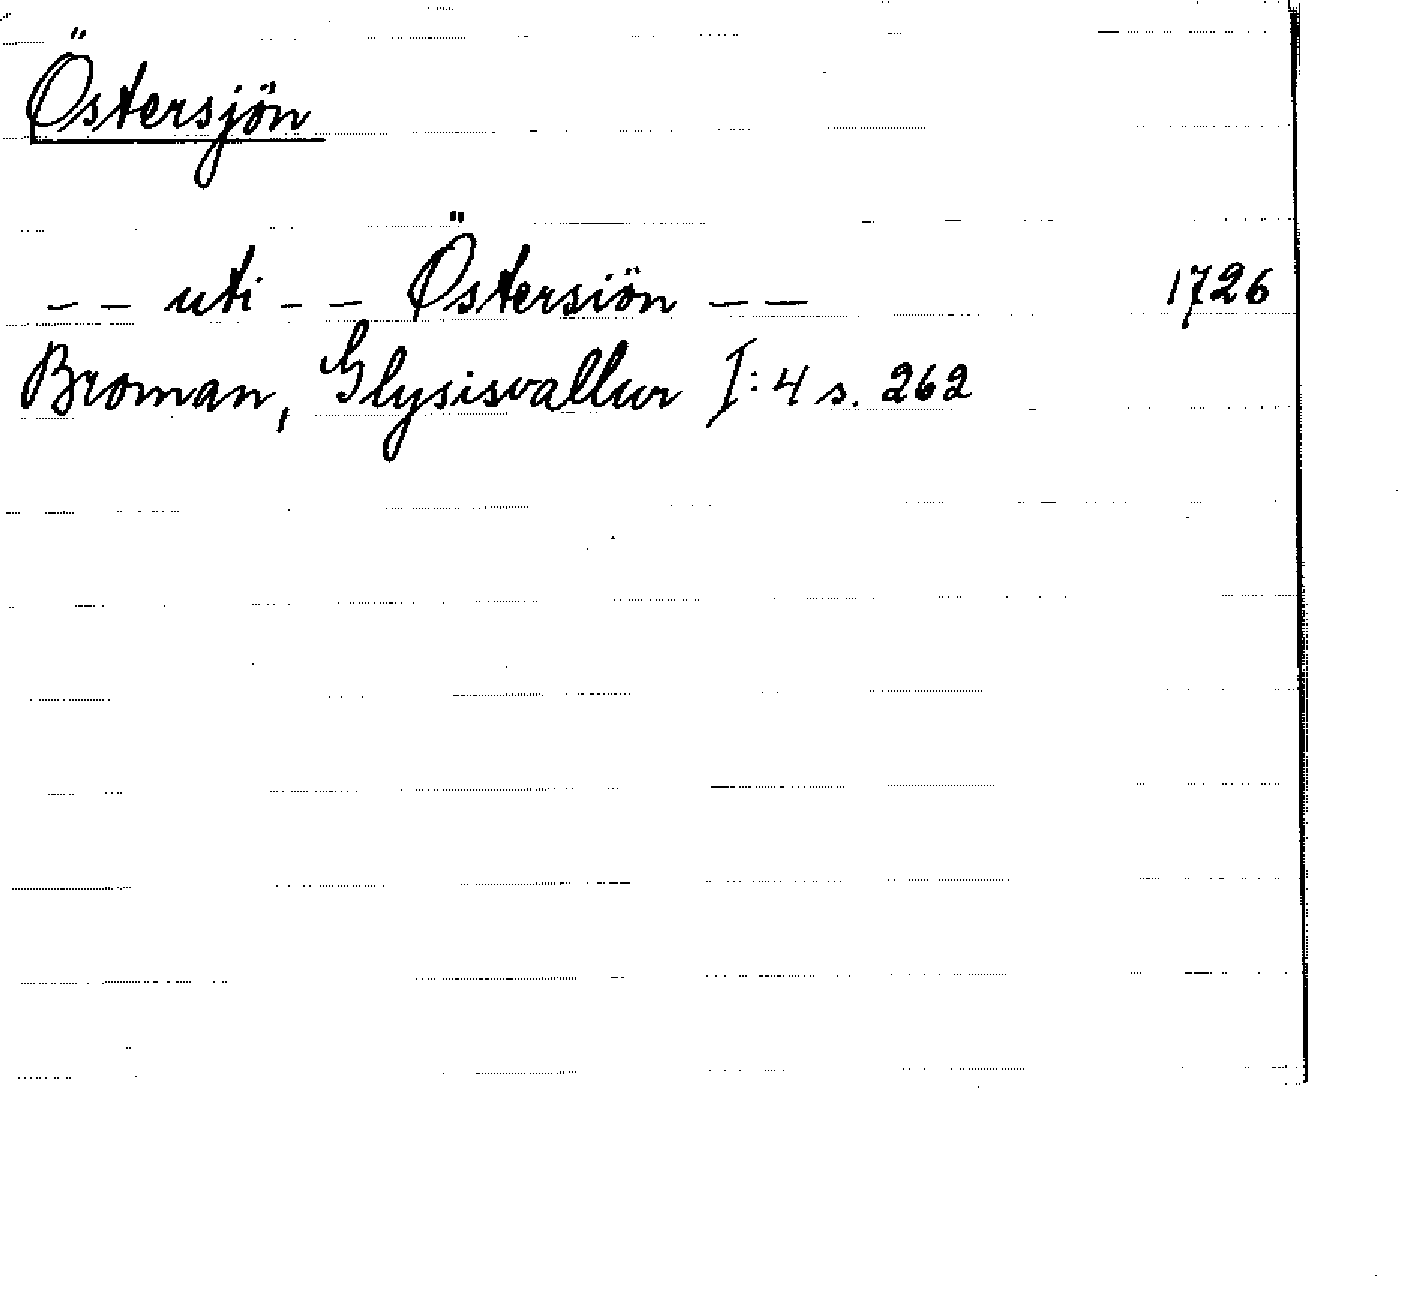 Östersjön
– – uti – – Östersiön – – 1726
Broman, Glysisvallur I:4 s. 262